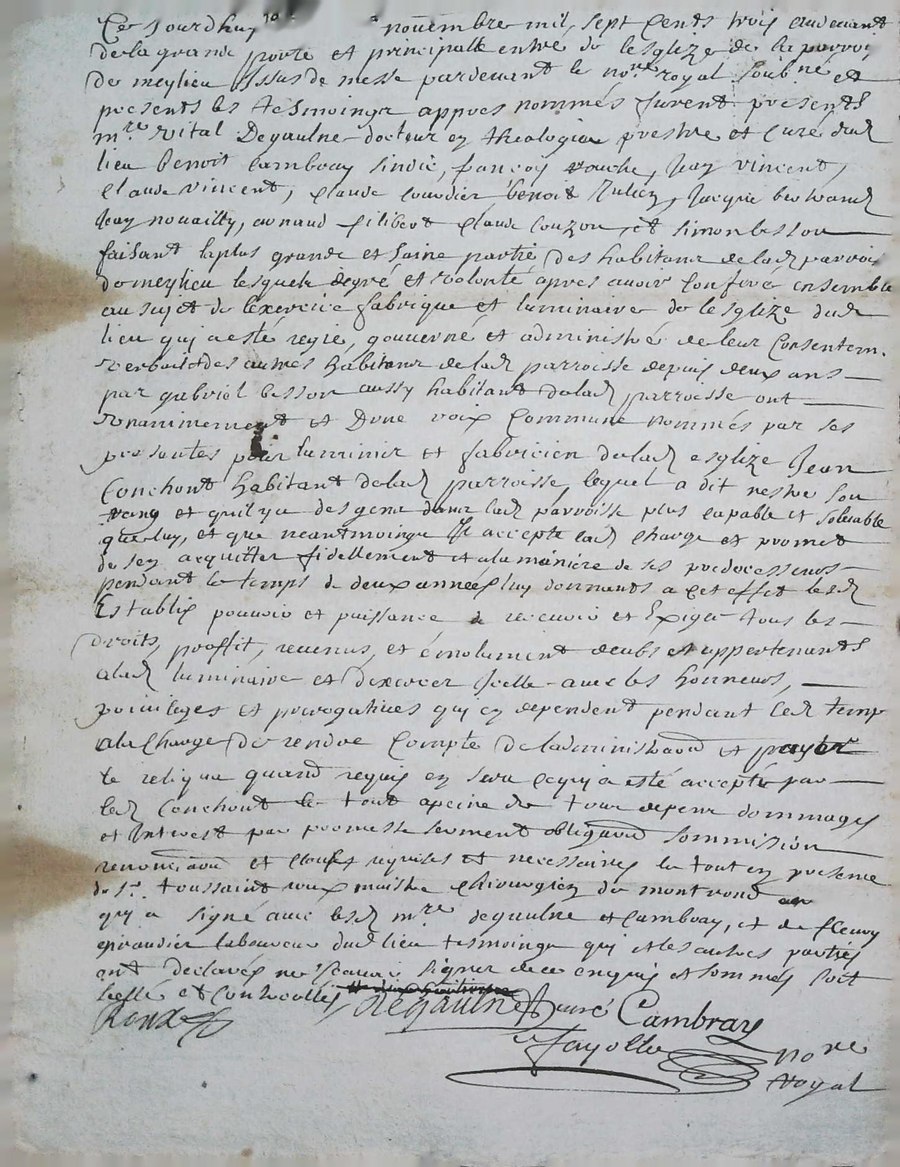 Ce Jourdhuy novembre mil sept Cents trois audevant
de la grande porte et principalle entrée de lesglize de la parroi
de meylieu Issus de messe pardevant le no.re royal soub.né et
presents les tesmoings appres nommés furent presents
m.re vital Degaulne docteur en theologie prestre et curé dud
lieu Benoit Cambray sindic, françois rouche, Jean vincent,
Claude vincent, Claude Benoit Julien, Jacque
Jean nouailly, arnaud filibert Claude Couzon, et simon besson
faisant la plus grande et saine partie des habitans de lad parroi
de meylieu lesquels degré et volonté apres avoir Conferé ensemble
au sujet de lexercice fabrique et luminaire de lesglize dud
lieu qui a esté regie, gouverné et administré de leur Consentem.
verbail et des autres habitans de lad parroisse depuis deux ans
par gabriel besson aussy habitant de lad parroisse ont
vnanimement et Dune voix Commune nommés par ses
presentes pour luminier et fabricien de lad esglize Jean
Conchont habitant de lad parroisse, lequel a dit nestre son
rang et quil y a des gens dans lad parroisse plus capable et solvable
que luy, et que neantmoings Il accepte lad Charge et promet
de sen acquitter fidellement et a la maniere de ses predecesseurs
pendant le temps de deux années luy donnants a cet effet lesd
Establis pouvoir et puissance de recevoir et Exiger tous les
droits, proffit, revenus, et émolument deubs et appertenants
a lad luminaire et dexercer Jcelle avec les honneurs,
privileges et prerogatives qui en dependent pendant led temp
a la Charge de rendre Compte de ladministraon et payer
le reliqua quand requis en sera ce qui a esté accepté par
led Conchont le tout a peine de tous depens dommages
et Interest par promesse serment obligaon sommission
renonciaon et clauses requises et necessaires le tout en presence
de s.r toussaint roux maistre Chirurgien de montrond
qui a signé avec lesd m.re degaulne et Cambray, et de fleury
laboureur dud lieu tesmoings qui et les autres parties
ont declarés ne scavoir signer de ce enquis et sommés soit
scellé et Controollé
Roux Degaulne Curé Cambray
Fayolle no.re
royal